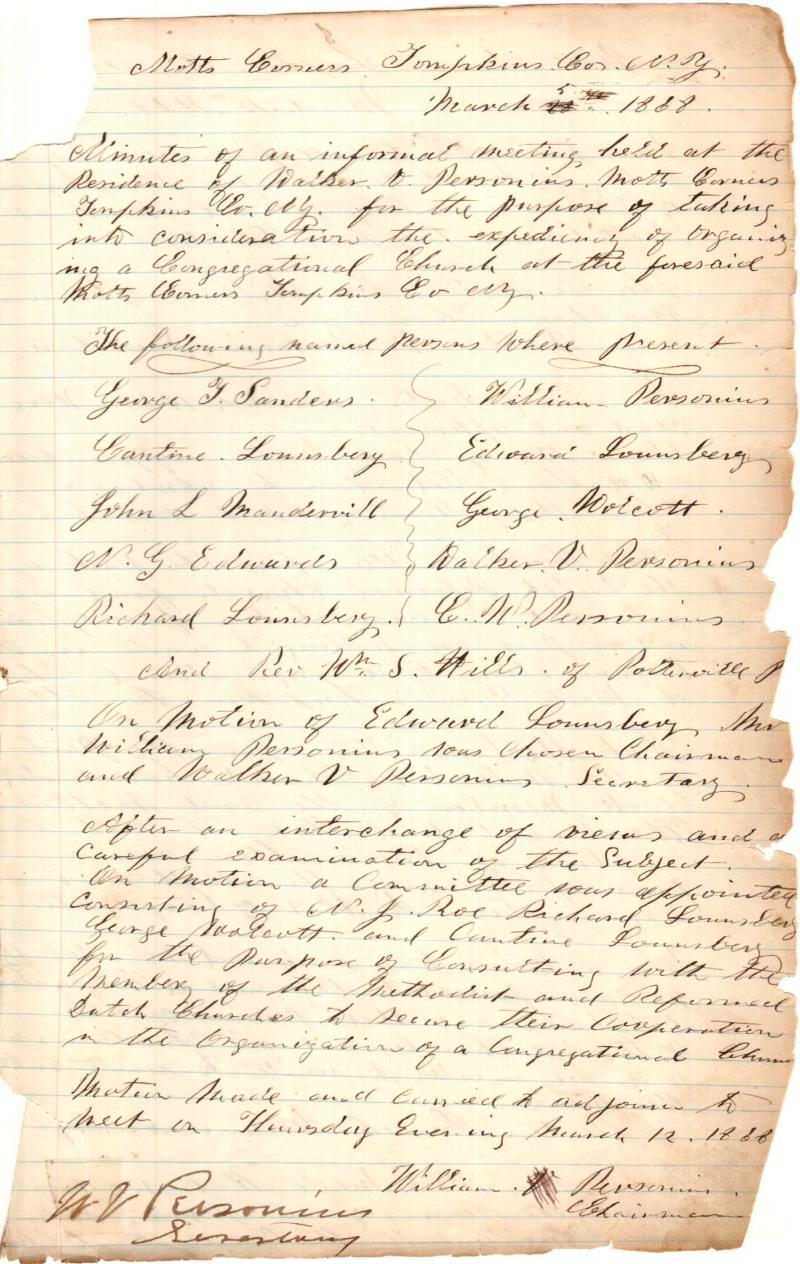 Motts Corners Tompkins Co. N.Y.
March 5th 1868.
Minutes of an informal meeting held at the
Residence of Walker. V. Personius. Motts Corners
Tompkins Co. N.Y. for the purpose of taking
into consideration the expediency of organiz
ing a Congregational Church at the foresaid
Motts Corners Tompkins Co NY.
The following named persons where present.
George F. Sanders. William Personius
Cantine Lounsbery Edward Lounsbery
John L Mandervill George Wolcott.
N. G. Edwards Walker. V. Personius
Richard Lounsbery. C. W. Personius
And Rev Wm. S. Hills. of Potterville P
On Motion of Edward Lounsbery
William Personius was chosen Chairman
and Walker V Personius Secretary.
After an interchange of views and a
careful examination of the Subject.
On Motion a Committee was appointed
consisting of N. J. Roe Richard Lounsbery
George Wolcott and Cantine Lounsbery
for the Purpose of Consulting with the
Members of the Methodist and Reformed
Dutch Churches to secure their Cooperation
in the Organization of a Congregational
Motion Made and carried to adjourn to
Meet on Thursday Evening March 12. 1868
William Personius.
Chairman
W V Personius
Secretary